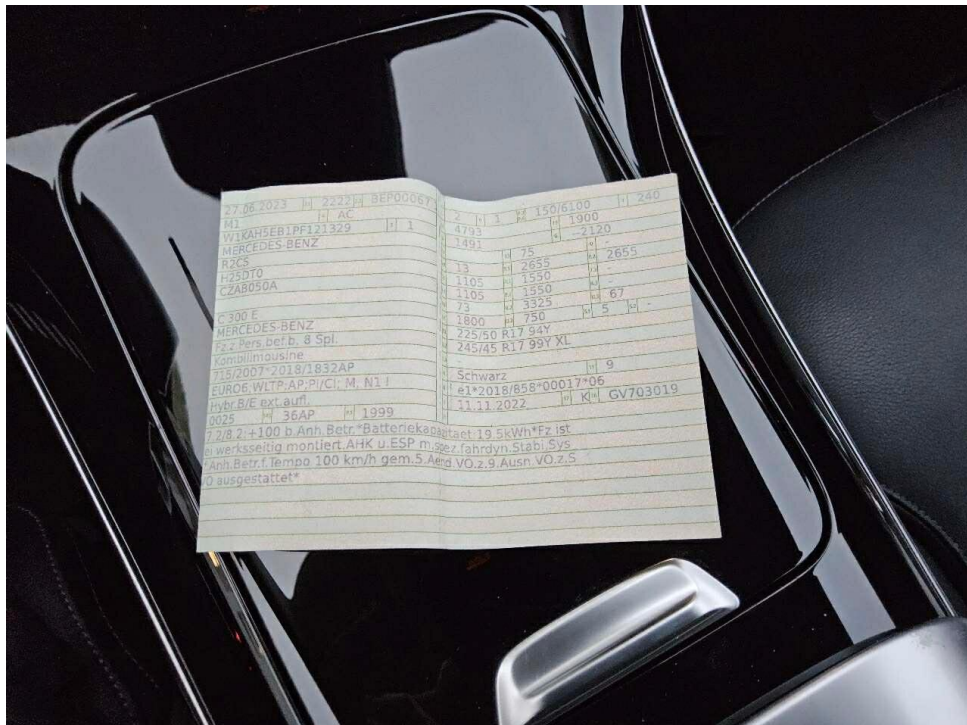 27.06.2023 2222 BEP00067
M1 AC
W1KAH5EB1PF121329 1
MERCEDES-BENZ
R2CS
H25DT0
CZAB050A
C 300 E
MERCEDES-BENZ
Fz.z.Pers.bef.b. 8 Spl.
Kombilimousine
715/2007*2018/1832AP
EURO6;WLTP;AP;PI/CI; M, N1 I
Hybr.B/E ext.aufl.
0025 36AP 1999
2 1 150/6100 240
4793 1900
1491 -2120
13 75 -
1105 2655 2655
1105 1550 -
73 1550 -
1800 3325 67
750 5 -
225/50 R17 94Y
245/45 R17 99Y XL
-
Schwarz 9
e1*2018/858*00017*06
11.11.2022 K GV703019
7.2/8.2:+100 b.Anh.Betr.*Batteriekapazitaet 19.5kWh*Fz ist
werksseitig montiert.AHK u.ESP m.spez.fahrdyn.Stabi.Sys
*Anh.Betr.f.Tempo 100 km/h gem.5.Aend.VO.z.9.Ausn.VO.z.S
VO ausgestattet*